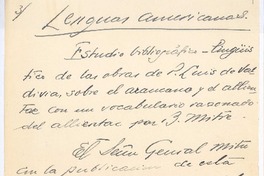 3/
Lenguas americanas.
Estudio bibliográfico-lingüis
tico de las obras de P. Luis de Val
divia, sobre el araucano y el allen
tiac con un vocabulario razonado
del allentiac por B. Mitre.
El Señor General Mitre
con la publicacion de esta